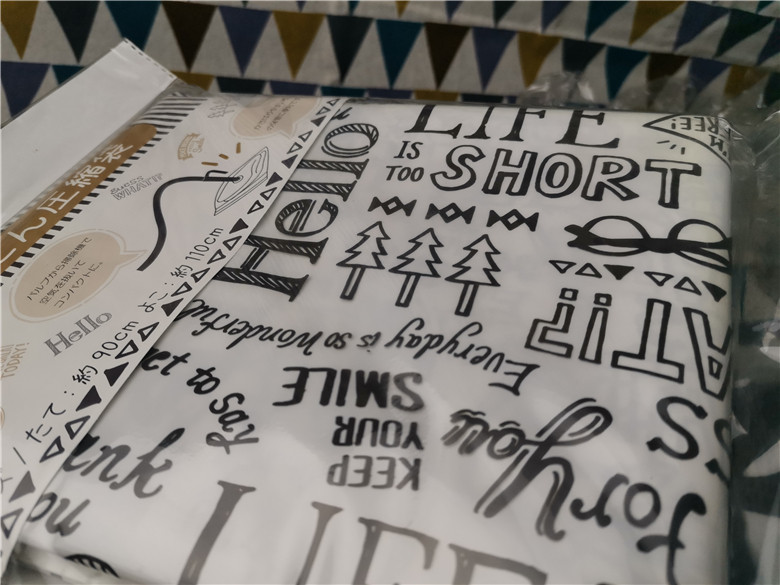 LIFE
IS
TOO
SHORT
Hello
FREE!
ん圧縮袋
guess
WHAT!?
バルブから掃除機で
空気を抜いて
コンパクトに。
Hello
TODAY!
/ たて:約 90cm よこ:約 110cm
Everyday is so wonderful
AT!?
KEEP
YOUR
SMILE
for you
fun
LIFE